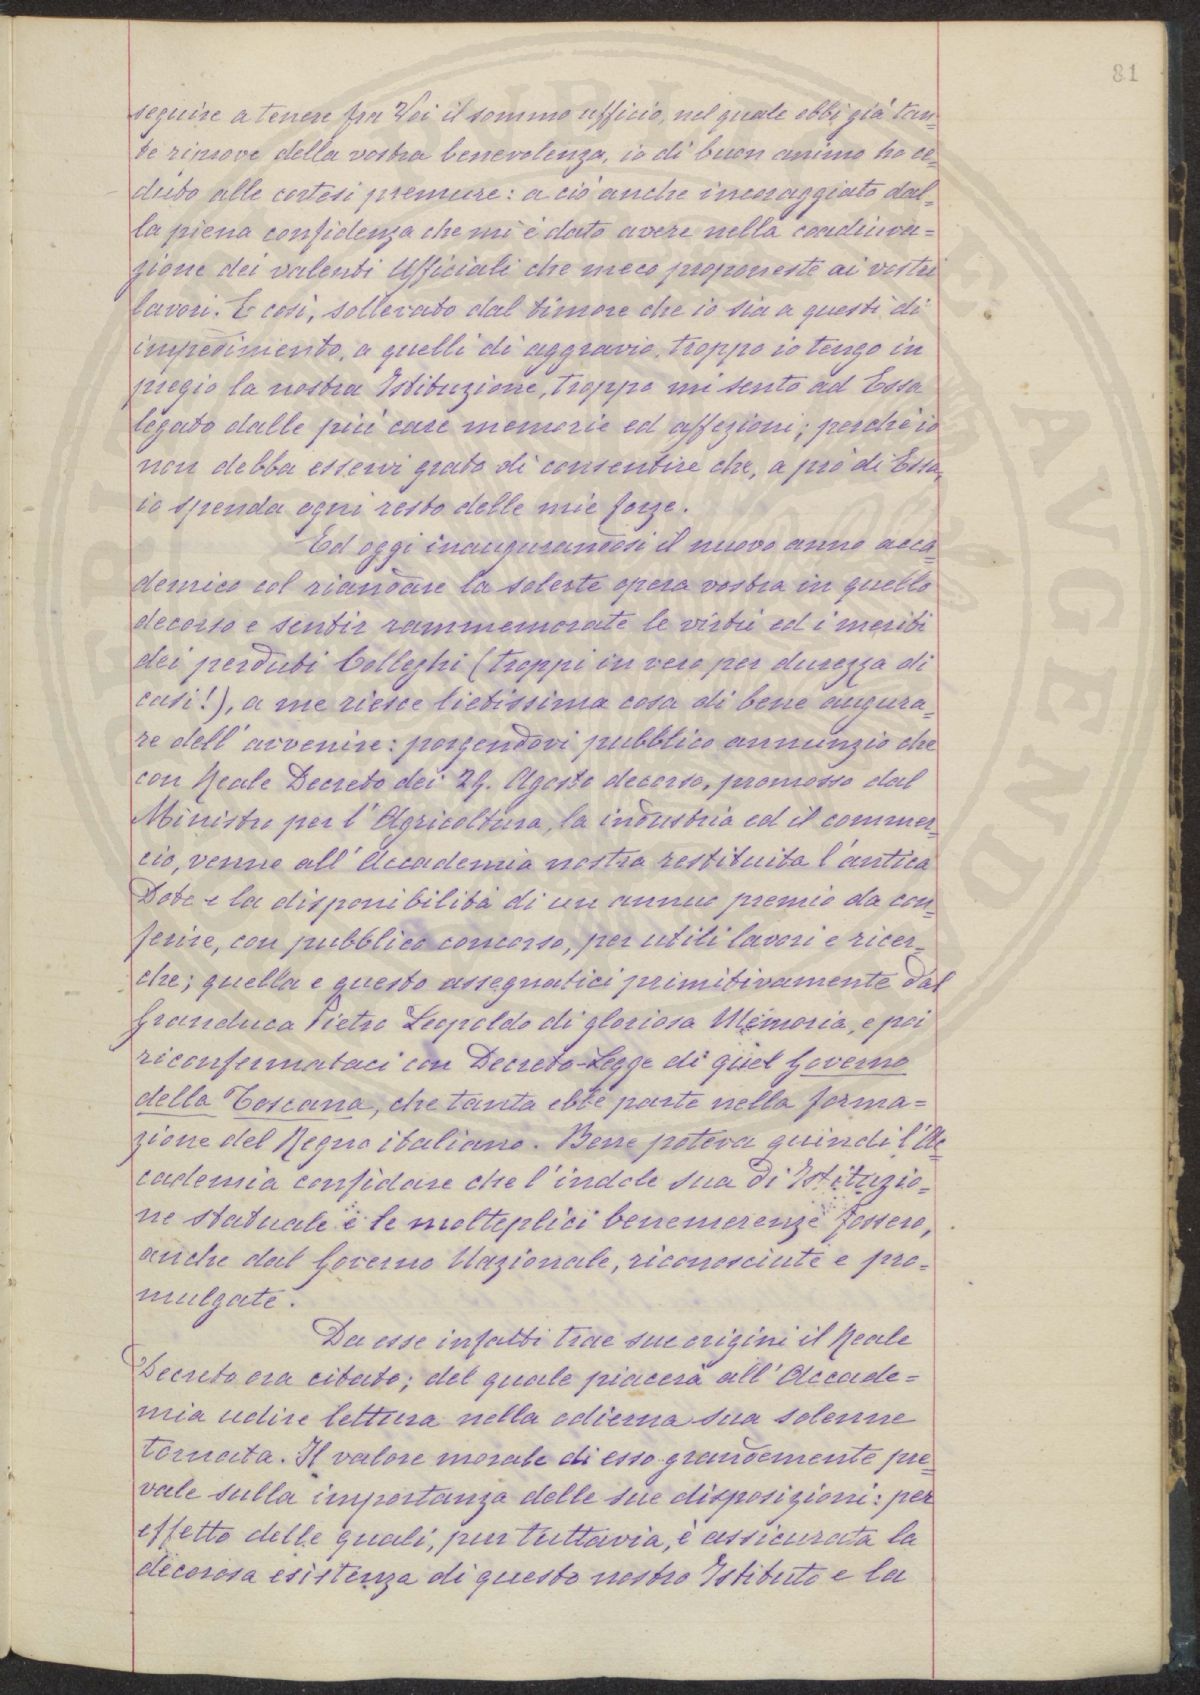 81
seguire a tenere fra Voi il sommo ufficio, nel quale ebbi già tan=
te riprove della vostra benevolenza, io di buon animo ho ce=
duto alle cortesi premure: a ciò anche incoraggiato dal=
la piena confidenza che mi è dato avere nella coadiuva=
zione dei valenti Ufficiali che meco proponeste ai vostri
lavori. E così, sollevato dal timore che io sia a questi di
impedimento, a quelli di aggravio, troppo io tengo in
pregio la nostra Istituzione, troppo mi sento ad Essa
legato dalle più care memorie ed affezioni; perchè io
non debba esservi grato di consentire che, a prò di Essa,
io spenda ogni resto delle mie forze.
Ed oggi inaugurandosi il nuovo anno acca=
demico col riandare la solerte opera vostra in quello
decorso e sentir rammemorate le virtù ed i meriti
dei perduti Colleghi (troppi in vero per durezza di
casi!), a me riesce lietissima cosa di bene augura=
re dell'avvenire: porgendovi pubblico annunzio che
con Reale Decreto dei 29. Agosto decorso, promosso dal
Ministro per l'Agricoltura, la industria ed il commer=
cio, venne all'Accademia nostra restituita l'antica
Dote e la disponibilità di un annuo premio da con=
ferire, con pubblico concorso, per utili lavori e ricer=
che; quella e questo assegnatici primitivamente dal
Granduca Pietro Leopoldo di gloriosa Memoria, e poi
riconfermataci con Decreto-Legge di quel Governo
della Toscana, che tanta ebbe parte nella forma=
zione del Regno italiano. Bene poteva quindi l'Ac=
cademia confidare che l'indole sua di Istituzio=
ne statuale e le molteplici benemerenze fossero,
anche dal Governo Nazionale, riconosciute e pro=
mulgate.
Da esse infatti trae sue origini il Reale
Decreto ora citato; del quale piacerà all'Accade=
mia udire lettura nella odierna sua solenne
tornata. Il valore morale di esso grandemente pre=
vale sulla importanza delle sue disposizioni: per
effetto delle quali, pur tuttavia, è assicurata la
decorosa esistenza di questo nostro Istituto e la